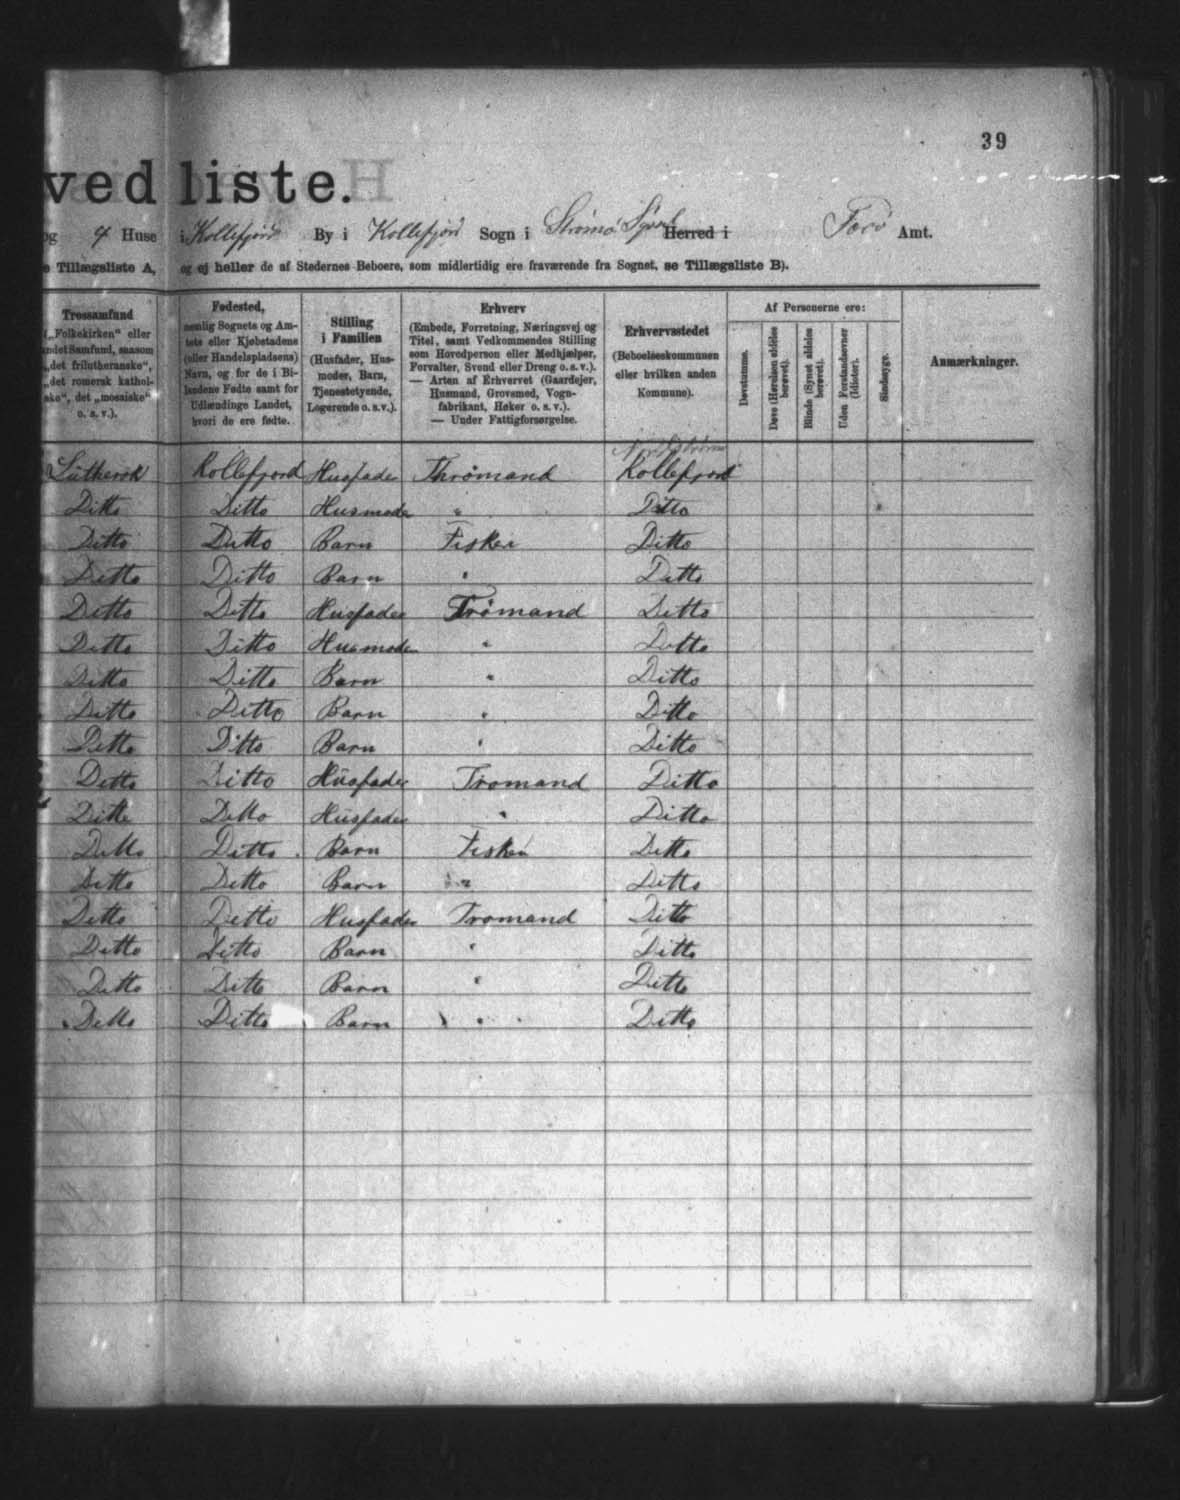 39
ved liste.
og 4 Huse i Kollefjord By i Kollefjord Sogn i Strømø Syssel Herred i Færø Amt.
e Tillægsliste A, og ej heller de af Stedernes Beboere, som midlertidig ere fraværende fra Sognet, se Tillægsliste B).
Trossamfund
(„Folkekirken“ eller
andet Samfund, saasom
„det frilutheranske“,
„det romersk kathol-
ske“, det „mosaiske“
o. s. v.).
Fødested,
nemlig Sognets og Am-
tets eller Kjøbstadens
(eller Handelspladsens)
Navn, og for de i Bi-
landene Fødte samt for
Udlændinge Landet,
hvori de ere fødte.
Stilling
i Familien
(Husfader, Hus-
moder, Barn,
Tjenestetyende,
Logerende o. s. v.).
Erhverv
(Embede, Forretning, Næringsvej og
Titel, samt Vedkommendes Stilling
som Hovedperson eller Medhjælper,
Forvalter, Svend eller Dreng o. s. v.).
— Arten af Erhvervet (Gaardejer,
Husmand, Grovsmed, Vogn-
fabrikant, Høker o. s. v.).
— Under Fattigforsørgelse.
Erhvervsstedet
(Beboelseskommunen
eller hvilken anden
Kommune).
Af Personerne ere:
Døvstumme.
Døve (Hørelsen aldeles
berøvet).
Blinde (Synet aldeles
berøvet).
Uden Forstandsevner
(Idioter).
Sindssyge.
Anmærkninger.
Luthersk Kollefjord Husfader Thrømand Kollefjord
Ditto Ditto Husmoder " Ditto
Ditto Ditto Barn Fisker Ditto
Ditto Ditto Barn " Ditto
Ditto Ditto Husfader Trømand Ditto
Ditto Ditto Husmoder " Ditto
Ditto Ditto Barn " Ditto
Ditto Ditto Barn " Ditto
Ditto Ditto Barn " Ditto
Ditto Ditto Husfader Tromand Ditto
Ditto Ditto Husfader " Ditto
Ditto Ditto Barn Fisker Ditto
Ditto Ditto Barn " Ditto
Ditto Ditto Husfader Tromand Ditto
Ditto Ditto Barn " Ditto
Ditto Ditto Barn " Ditto
Ditto Ditto Barn " Ditto